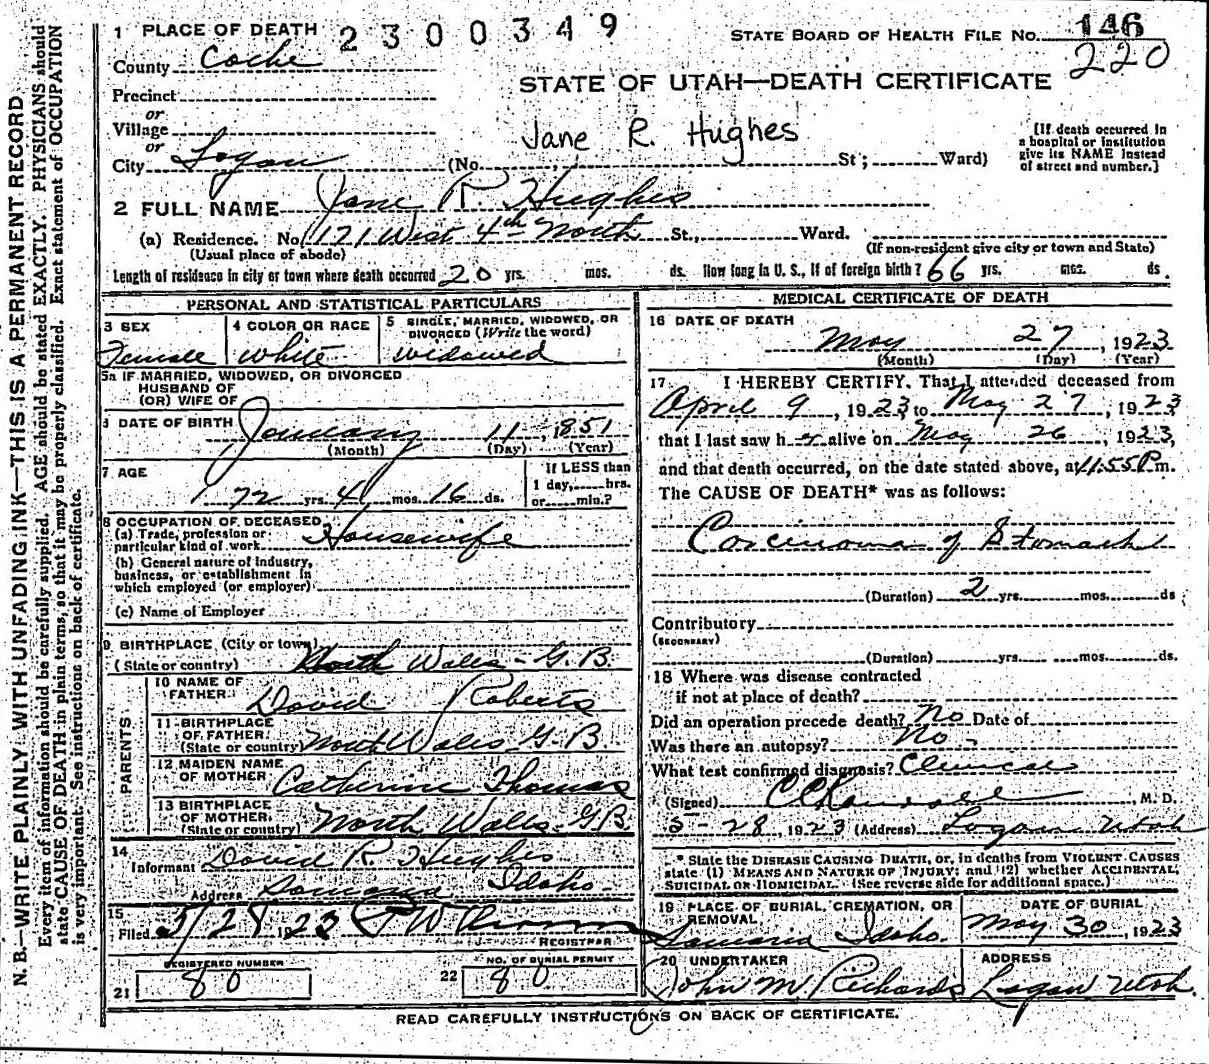 N. B.—WRITE PLAINLY WITH UNFADING INK—THIS IS A PERMANENT RECORD
Every item of information should be carefully supplied. AGE should be stated EXACTLY. PHYSICIANS should
state CAUSE OF DEATH in plain terms, so that it may be properly classified. Exact statement of OCCUPATION
is very important. See instructions on back of certificate.
1 PLACE OF DEATH 2300349
STATE BOARD OF HEALTH FILE No. 146
220
County Cache
STATE OF UTAH—DEATH CERTIFICATE
Precinct
or
Village
or
City Logan
Jane R. Hughes
(No. St; Ward)
[If death occurred in
a hospital or institution
give its NAME instead
of street and number.]
2 FULL NAME Jane R. Hughes
(a) Residence. No. 171 West 4th North St., Ward.
(Usual place of abode)
(If non-resident give city or town and State)
Length of residence in city or town where death occurred 20 yrs. mos. ds. How long in U. S., if of foreign birth? 66 yrs. mos. ds.
PERSONAL AND STATISTICAL PARTICULARS
3 SEX
Female
4 COLOR OR RACE
White
5 SINGLE, MARRIED, WIDOWED, OR
DIVORCED (Write the word)
Widowed
5a IF MARRIED, WIDOWED, OR DIVORCED
HUSBAND OF
(OR) WIFE OF
DATE OF BIRTH January 11, 1851
(Month) (Day) (Year)
7 AGE
72 yrs. 4 mos. 16 ds.
If LESS than
1 day, hrs.
or min.?
8 OCCUPATION OF DECEASED
(a) Trade, profession or
particular kind of work Housewife
(b) General nature of industry,
business, or establishment in
which employed (or employer)
(c) Name of Employer
9 BIRTHPLACE (City or town)
(State or country) North Wales - G. B.
PARENTS
10 NAME OF
FATHER David Roberts
11 BIRTHPLACE
OF FATHER
(State or country) North Wales G. B.
12 MAIDEN NAME
OF MOTHER Catherine Thomas
13 BIRTHPLACE
OF MOTHER
(State or country) North Wales - G. B.
14
Informant David R. Hughes
Address Samaria Idaho
15
Filed 5/28 1923
REGISTRAR
REGISTERED NUMBER
21 80
NO. OF BURIAL PERMIT
22 80
MEDICAL CERTIFICATE OF DEATH
16 DATE OF DEATH
May 27, 1923
(Month) (Day) (Year)
17 I HEREBY CERTIFY, That I attended deceased from
April 9, 1923 to May 27, 1923
that I last saw her alive on May 26, 1923,
and that death occurred, on the date stated above, at 11.55 P.m.
The CAUSE OF DEATH* was as follows:
Carcinoma of Stomach
(Duration) 2 yrs. mos. ds
Contributory
(SECONDARY)
(Duration) yrs. mos. ds.
18 Where was disease contracted
if not at place of death?
Did an operation precede death? No Date of
Was there an autopsy? No -
What test confirmed diagnosis? Clinical
(Signed) M. D.
5-28, 1923 (Address) Logan Utah
* State the DISEASE CAUSING DEATH, or, in deaths from VIOLENT CAUSES
state (1) MEANS AND NATURE OF INJURY; and (2) whether ACCIDENTAL,
SUICIDAL or HOMICIDAL. (See reverse side for additional space.)
19 PLACE OF BURIAL, CREMATION, OR
REMOVAL
Samaria Idaho.
DATE OF BURIAL
May 30, 1923
20 UNDERTAKER
John M. Richards
ADDRESS
Logan Utah.
READ CAREFULLY INSTRUCTIONS ON BACK OF CERTIFICATE.